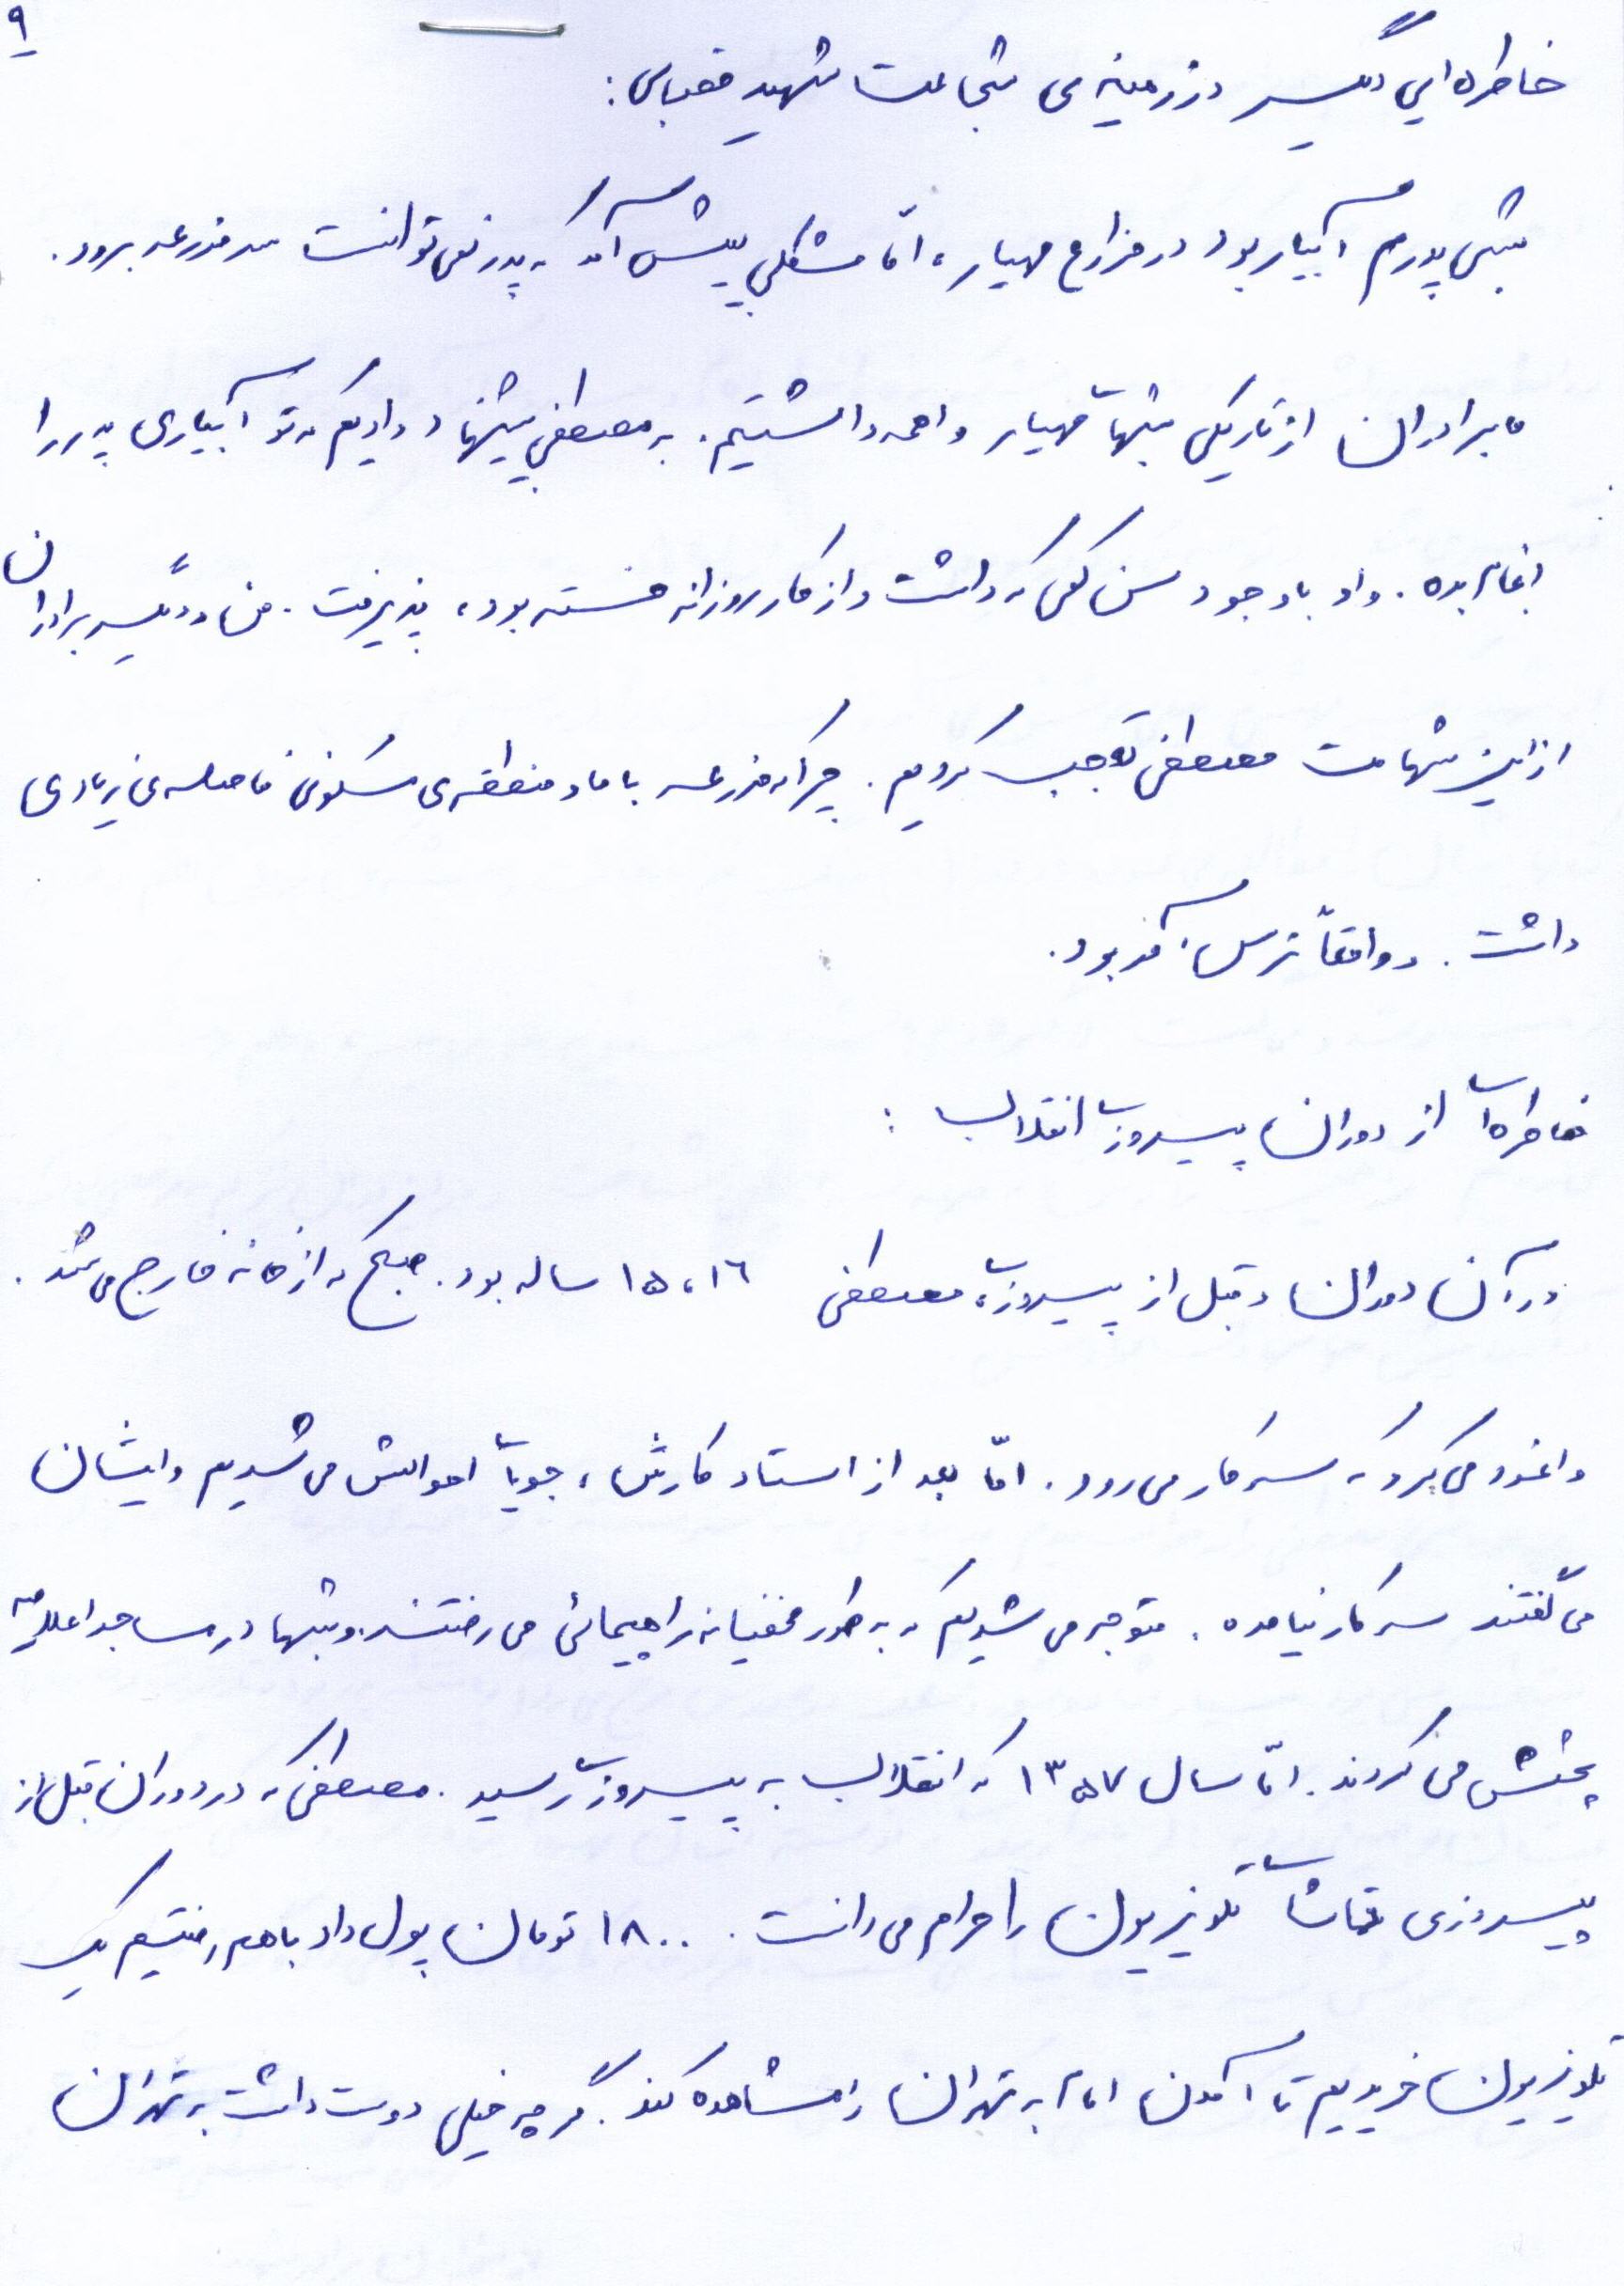 ۹
خاطره‌ایی دیگر در زمینه‌ی شجاعت شهید قصابی:
شبی پدرم آبیار بود در مزارع مهیار، امّا مشکلی پیش آمد که پدر نمی‌توانست سر مزرعه برود.
ما برادران از تاریکی شبهای مهیار واهمه داشتیم. به مصطفی پیشنهاد دادیم که تو آبیاری پدر را
انجام بده. و او با وجود سن کمی که داشت و از کار روزانه خسته بود، پذیرفت. من و دیگر برادران
از این شهامت مصطفی تعجب کردیم. چرا که مزرعه با ما و منطقه‌ی مسکونی فاصله‌ی زیادی
داشت. و واقعاً ترس‌آور بود.
خاطره‌ای از دوران پیروزی انقلاب:
در آن دوران و قبل از پیروزی، مصطفی ۱۵،۱۶ ساله بود. صبح که از خانه خارج می‌شد.
وانمود می‌کرد که سر کار می‌رود. امّا بعد از استاد کارش، جویای احوالش می‌شدیم و ایشان
می‌گفتند سر کار نیامده. متوجه می‌شدیم که به طور مخفیانه راهپیمائی می‌رفتند. و شبها در مساجد اعلامیه
پخش می‌کردند. امّا سال ۱۳۵۷ که انقلاب به پیروزی رسید. مصطفی که در دوران قبل از
پیروزی تماشای تلویزیون را حرام می‌دانست. ۱۸۰۰ تومان پول داد با هم رفتیم یک
تلویزیون خریدیم تا آمدن امام به تهران را مشاهده کند. گرچه خیلی دوست داشت به تهران